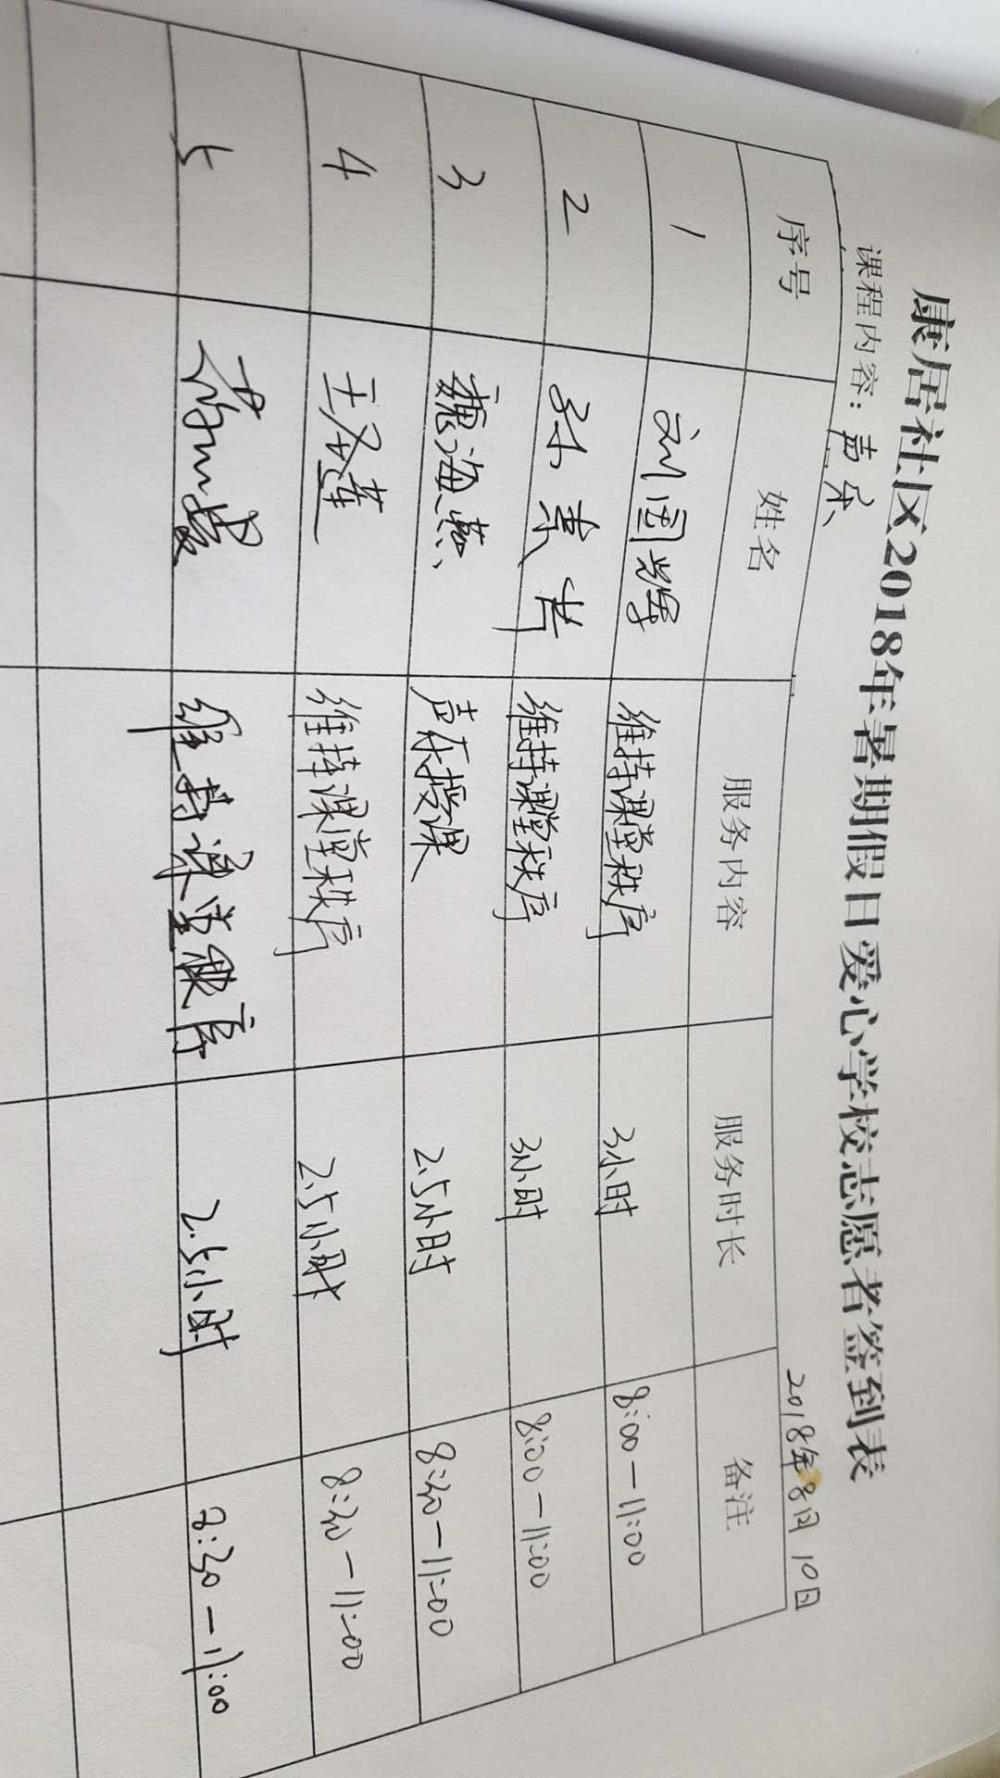 康居社区2018年暑期假日爱心学校志愿者签到表
课程内容：声乐 2018年8月10日
序号 姓名 服务内容 服务时长 备注
1 刘国辉 维持课堂秩序 3小时 8:00-11:00
2 孙素 维持课堂秩序 3小时 8:00-11:00
3 魏海燕 声乐授课 2.5小时 8:30-11:00
4 王冬莲 维持课堂秩序 2.5小时 8:30-11:00
5 维持课堂秩序 2.5小时 8:30-11:00